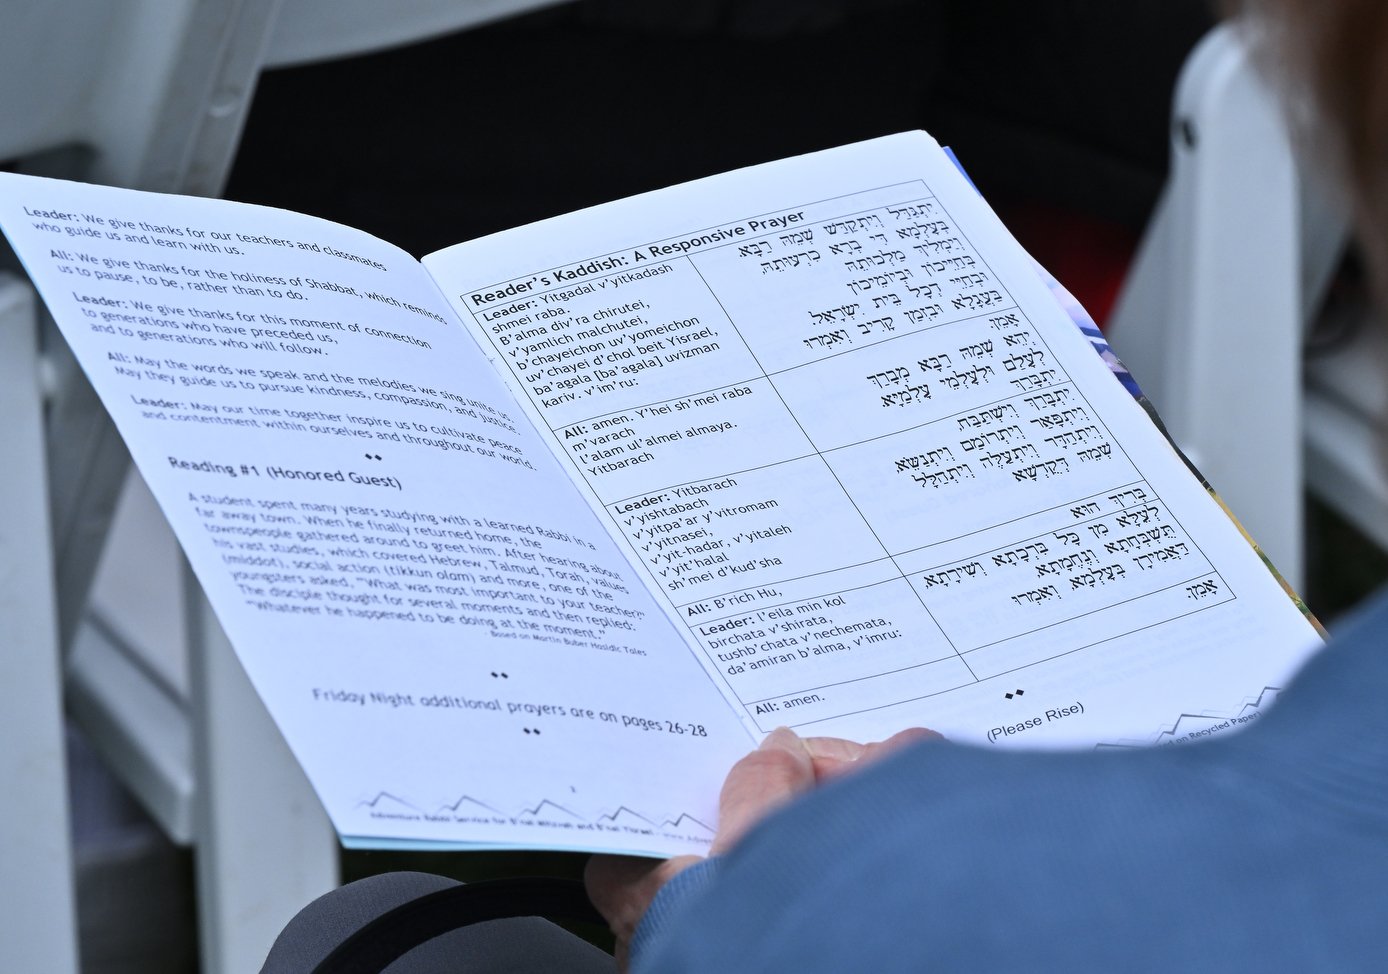 Leader: We give thanks for our teachers and classmates
who guide us and learn with us.
All: We give thanks for the holiness of Shabbat, which reminds
us to pause, to be, rather than to do.
Leader: We give thanks for this moment of connection
to generations who have preceded us,
and to generations who will follow.
All: May the words we speak and the melodies we sing unite us
May they guide us to pursue kindness, compassion, and justice
Leader: May our time together inspire us to cultivate peace
and contentment within ourselves and throughout our world.
Reading #1 (Honored Guest)
A student spent many years studying with a learned Rabbi in a
far away town. When he finally returned home, the
townspeople gathered around to greet him. After hearing about
his vast studies, which covered Hebrew, Talmud, Torah, values
(middot), social action (tikkun olam) and more, one of the
youngsters asked, "What was most important to your teacher?"
The disciple thought for several moments and then replied:
"Whatever he happened to be doing at the moment."
- Based on Martin Buber Hasidic Tales
Friday Night additional prayers are on pages 26-28
Adventure Rabbi Service for B'nai Mitzvah and B'nai Yisrael - www.Adven
Reader's Kaddish: A Responsive Prayer
Leader: Yitgadal v'yitkadash
shmei raba,
B'alma div'ra chirutei,
v'yamlich malchutei,
b'chayeichon uv'yomeichon
uv'chayei d'chol beit Yisrael,
ba'agala [ba'agala] uvizman
kariv. v'im'ru:
יִתְגַּדַּל וְיִתְקַדַּשׁ שְׁמֵהּ רַבָּא
בְּעָלְמָא דִּי בְרָא כִרְעוּתֵהּ,
וְיַמְלִיךְ מַלְכוּתֵהּ
בְּחַיֵּיכוֹן וּבְיוֹמֵיכוֹן
וּבְחַיֵּי דְכָל בֵּית יִשְׂרָאֵל,
בַּעֲגָלָא וּבִזְמַן קָרִיב וְאִמְרוּ
All: amen. Y'hei sh'mei raba
m'varach
l'alam ul'almei almaya.
Yitbarach
אָמֵן.
יְהֵא שְׁמֵהּ רַבָּא מְבָרַךְ
לְעָלַם וּלְעָלְמֵי עָלְמַיָּא.
יִתְבָּרַךְ
Leader: Yitbarach
v'yishtabach
v'yitpa'ar y'vitromam
v'yitnasei,
v'yit-hadar, v'yitaleh
v'yit'halal
sh'mei d'kud'sha
יִתְבָּרַךְ וְיִשְׁתַּבַּח,
וְיִתְפָּאַר וְיִתְרוֹמַם וְיִתְנַשֵּׂא
וְיִתְהַדָּר וְיִתְעַלֶּה וְיִתְהַלָּל
שְׁמֵהּ דְּקֻדְשָׁא
All: B'rich Hu,
בְּרִיךְ הוּא
Leader: l'eila min kol
birchata v'shirata,
tushb'chata v'nechemata,
da'amiran b'alma, v'imru:
לְעֵלָּא מִן כָּל בִּרְכָתָא וְשִׁירָתָא,
תֻּשְׁבְּחָתָא וְנֶחֱמָתָא
דַּאֲמִירָן בְּעָלְמָא, וְאִמְרוּ
All: amen.
אָמֵן.
(Please Rise)
on Recycled Paper